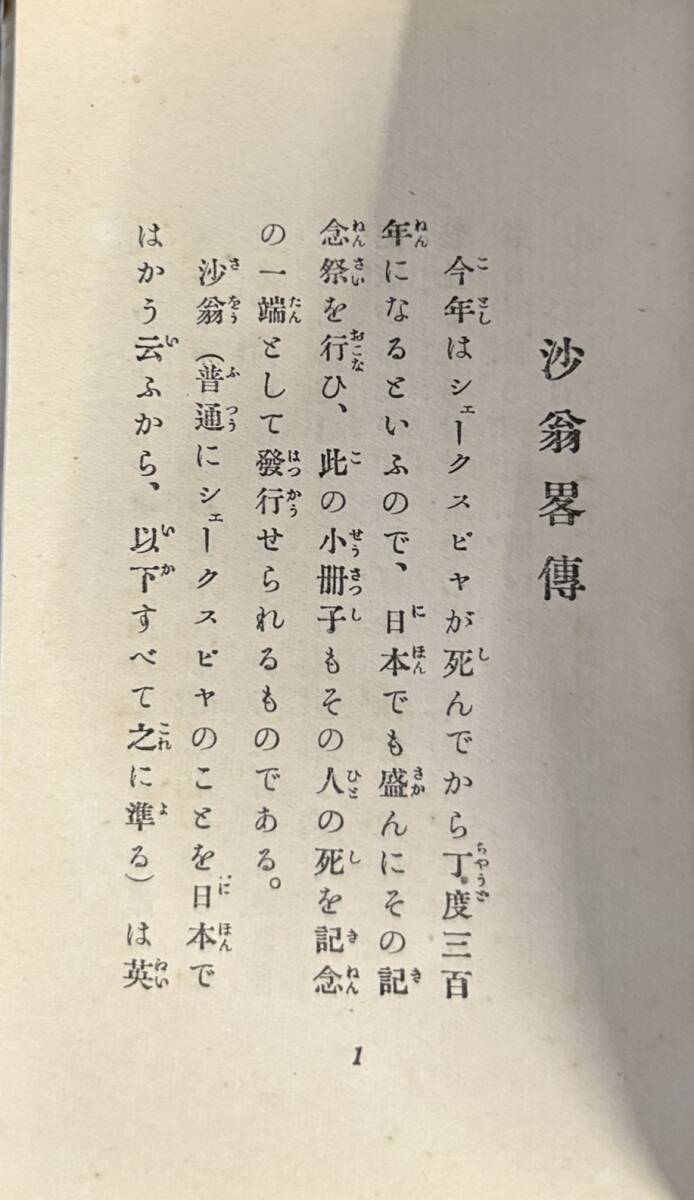 沙翁畧傳
今年はシェークスピヤが死んでから丁度三百
年になるといふので、日本でも盛んにその記
念祭を行ひ、此の小册子もその人の死を記念
の一端として發行せられるものである。
沙翁（普通にシェークスピヤのことを日本で
はかう云ふから、以下すべて之に準る）は英
1